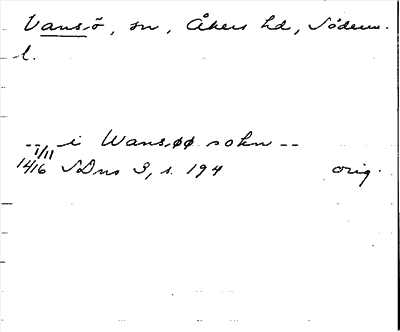 Vansö, sn, Åkers hd, Söderm.
l.
-- i Wansøø sokn --
1/11
1416 SDns 3, s. 194 orig.